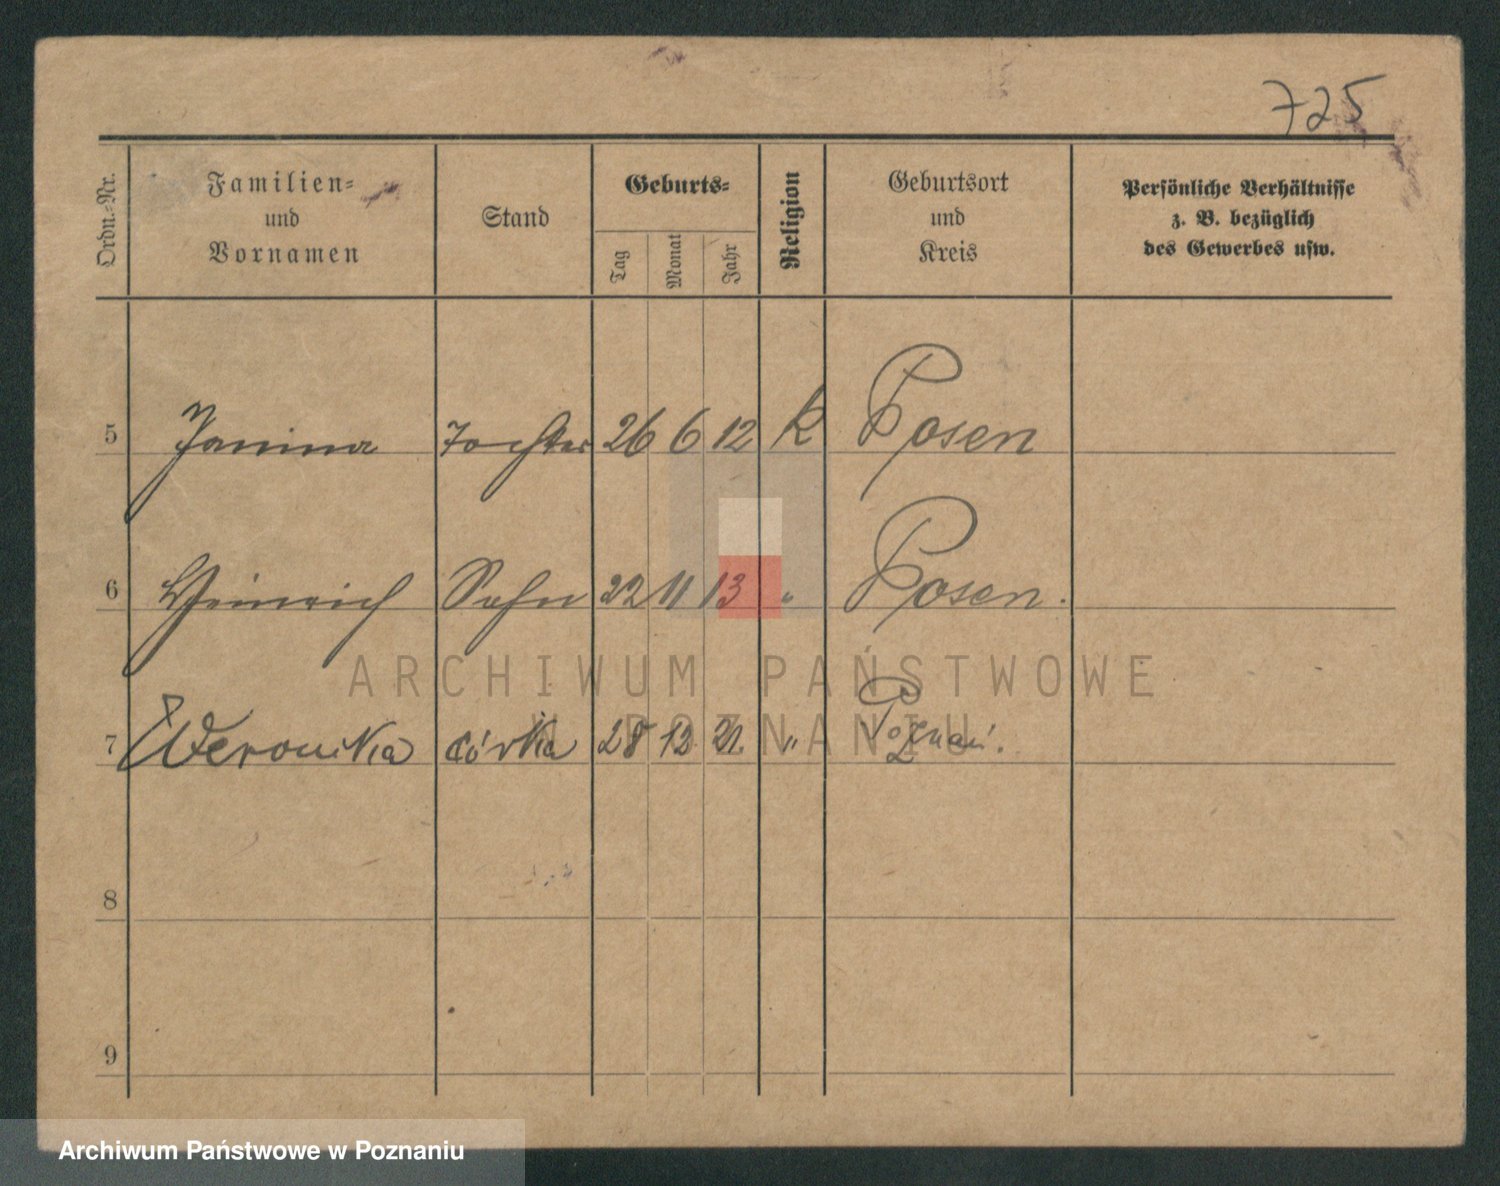 725
Ordn.-Nr. Familien- und Vornamen Stand Geburts- Tag Monat Jahr Religion Geburtsort und Kreis Persönliche Verhältnisse z. B. bezüglich des Gewerbes usw.
5 Janina Tochter 26 6 12 K Posen
6 Heinrich Sohn 22 11 13 " Posen.
ARCHIWUM PAŃSTWOWE
W POZNANIU
7 Weronika córka 28 12 21. " Poznań.
8
9
Archiwum Państwowe w Poznaniu